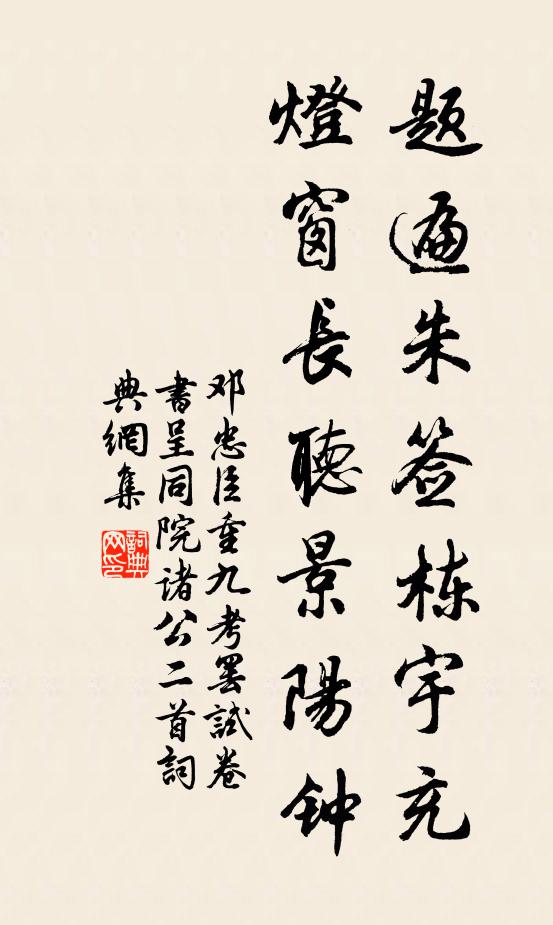 题遍朱签栋宇充
燈窗長聽景陽钟
邓忠臣重九考罢試卷
書呈同院诸公二首詞
典網集
詞典网印